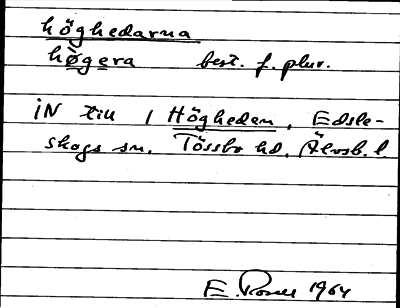 höghedarna
högera best. f. plur.
iN till 1 Högheden, Edsle-
skogs sn. Tössbo hd. Älvsb. l.
E. 1964